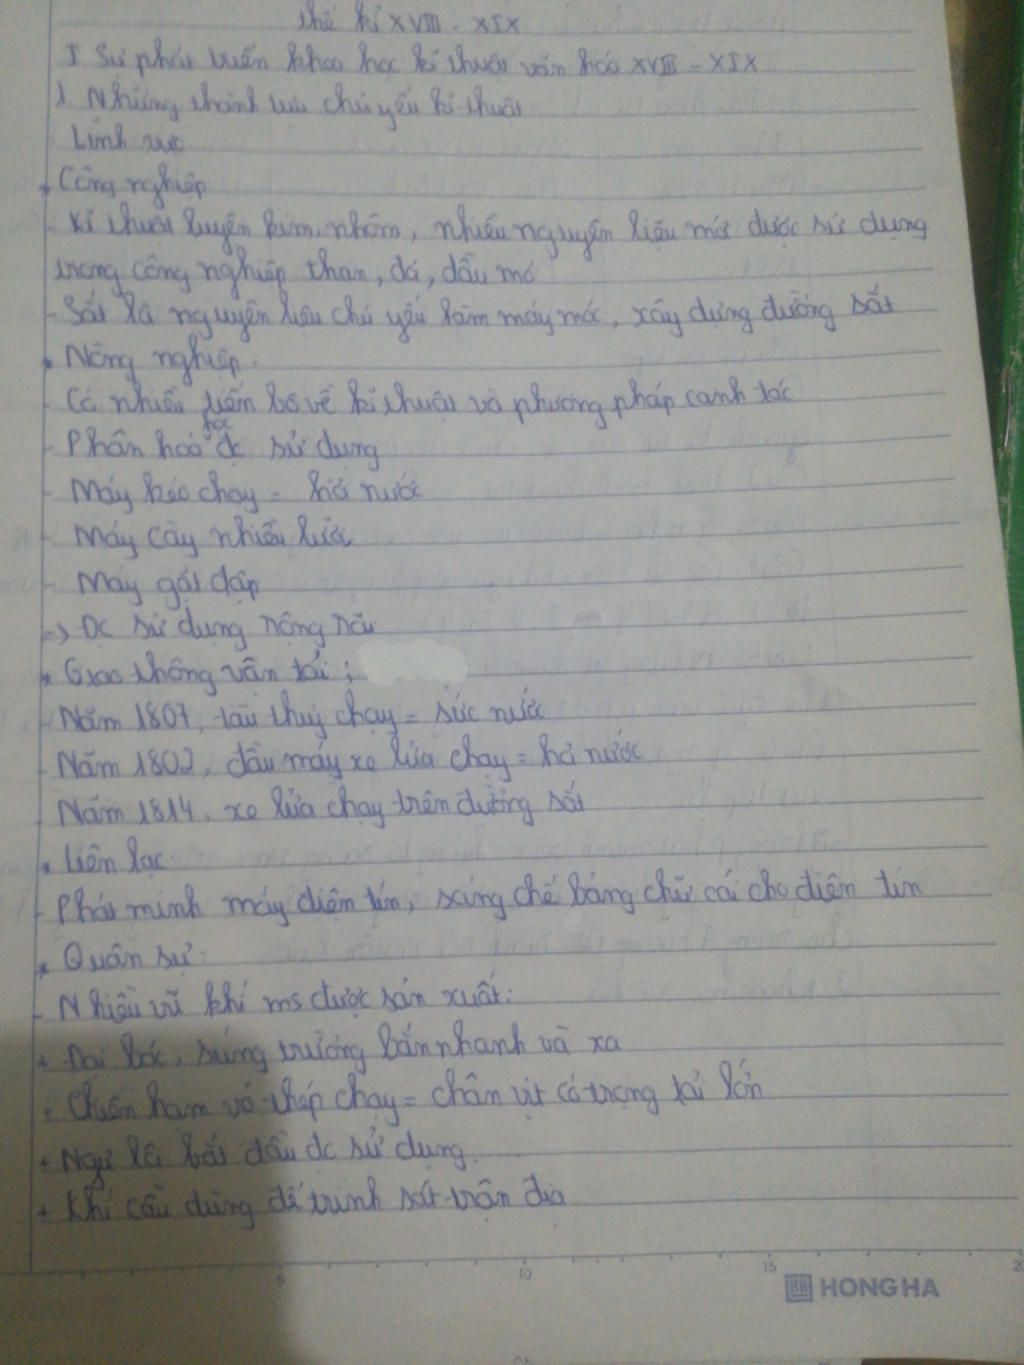 thế kỉ XVIII - XIX
I Sự phát triển khoa học kĩ thuật văn hóa XVIII - XIX
1. Những thành tựu chủ yếu kĩ thuật
Lĩnh vực
* Công nghiệp
- Kĩ thuật luyện kim, nhôm, nhiều nguyên liệu mới được sử dụng
trong công nghiệp than, đá, dầu mỏ
- Sắt là nguyên liệu chủ yếu làm máy móc, xây dựng đường sắt
* Nông nghiệp:
- Có nhiều tiến bộ về kĩ thuật và phương pháp canh tác
- Phân hoá học đc sử dụng
- Máy kéo chạy = hơi nước
- Máy cày nhiều lưỡi
- Máy gặt đập
=> Đc sử dụng rộng rãi
* Giao thông vận tải;
- Năm 1807, tàu thuỷ chạy = sức nước
- Năm 1802, đầu máy xe lửa chạy = hơi nước
Năm 1814, xe lửa chạy trên đường sắt
* Liên lạc
- Phát minh máy điện tín, sáng chế bảng chữ cái cho điện tín
* Quân sự:
- Nhiều vũ khí ms được sản xuất:
+ Đại bác, súng trường bắn nhanh và xa
+ Chiến hạm vỏ thép chạy = chân vịt có trọng tải lớn
+ Ngư lôi bắt đầu đc sử dụng.
+ Khí cầu dùng để trinh sát trận địa
5 10 15 20
HH HONG HA